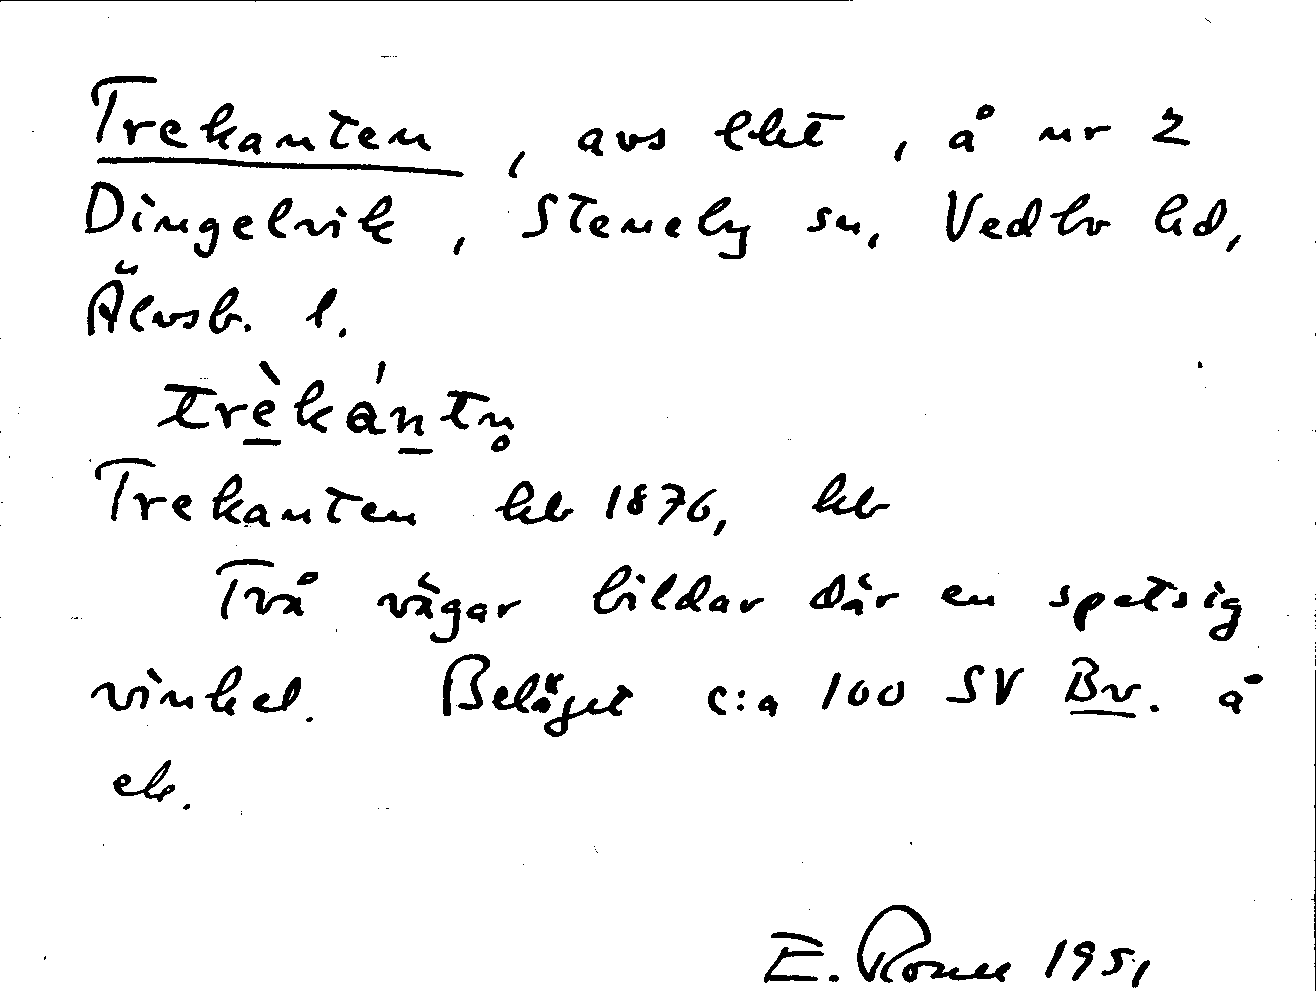 Trekanten, avs lht, å nr 2
Dingelvik, Steneby sn, Vedbo hd,
Älvsb. l.
trèkántn̥
Trekanten kb 1876, kb
Två vägar bildar där en spetsig
vinkel. Beläget c:a 100 SV Bv. å
ek.
E. 1951